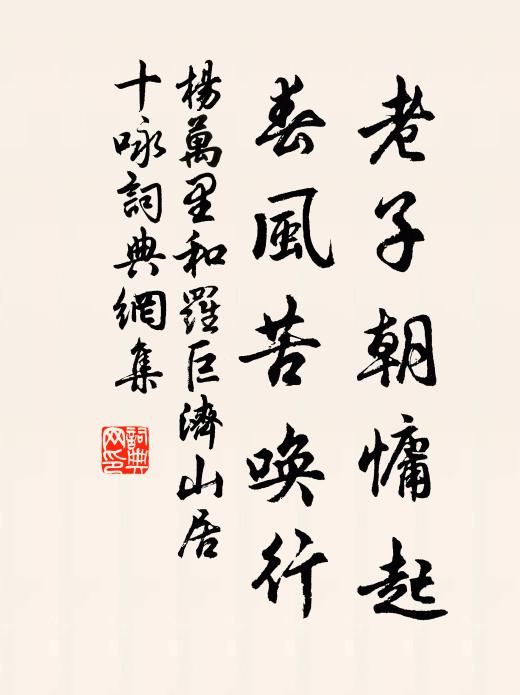 老子朝慵起
春風苦喚行
楊萬里和羅巨濟山居
十咏詞典網集
詞典
网印